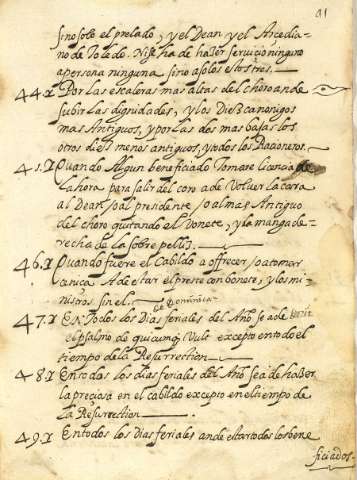 91
sino solo el prelado, y el Dean y el Arcedia-
no de Toledo. Nise ha de haçer servicio ninguno
a persona ninguna sino a solos estos tres.
44. Por las escaleras mas altas del choro ande
subir las dignidades, y los Diez canonigos
mas Antiguos, y por las dos mas bajas los
otros diez menos antiguos, y todos los Raçoneros.
45. Quando Algun beneficiado Tomare licencia de
la hora para salir del coro a de Volver la cara
al Dean, o al presidente o al mas Antiguo
del choro quitando el bonete, y la manga de-
recha de la sobrepelliz.
46. Quando fuere el Cabildo a offrecer, o a tomar
A de estar el preste con bonete, y los mi-
nistros sin el.
de Dominica
47. En Todos los Dias feriales del Año se a de deçir
el psalmo de quicumq Vult excepto en todo el
tiempo de la Resurrection
48. En todas los dias feriales del Año se a de haçer
la preciosa en el cabildo excepto en el tiempo de
la Resurrection
49. En todos los dias feriales ande estar todos los bene
ficiados.